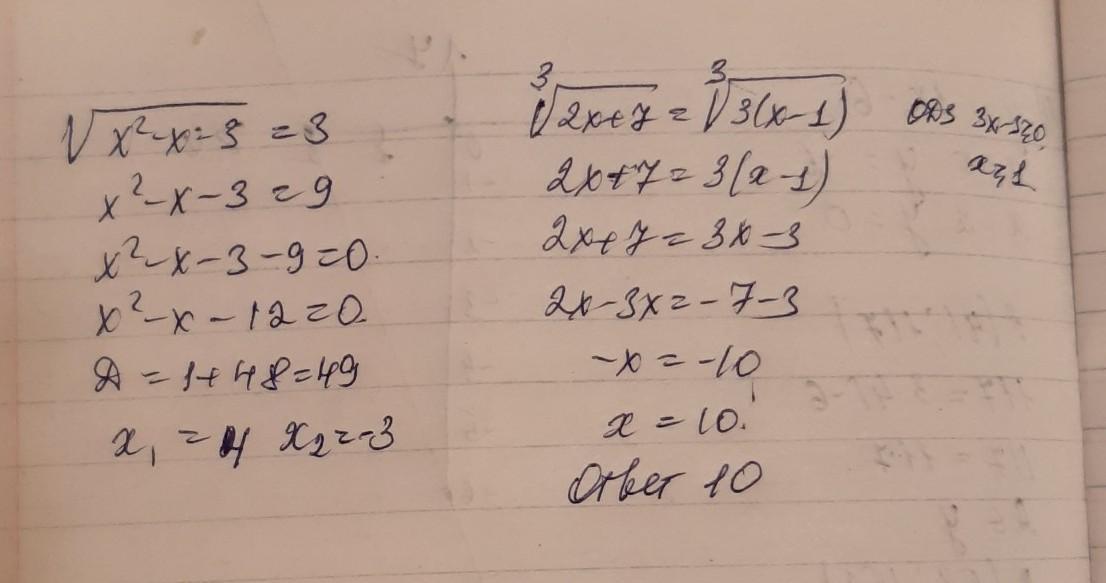 √x²-x-3 = 3
x²-x-3=9
x²-x-3-9=0.
x²-x-12=0.
D = 1+48=49
x₁ = 4 x₂=-3
³√2x+7 = ³√3(x-1) ОДЗ 3x-3≥0
x≥1
2x+7=3(x-1)
2x+7=3x-3
2x-3x=-7-3
-x=-10
x=10.
Ответ 10